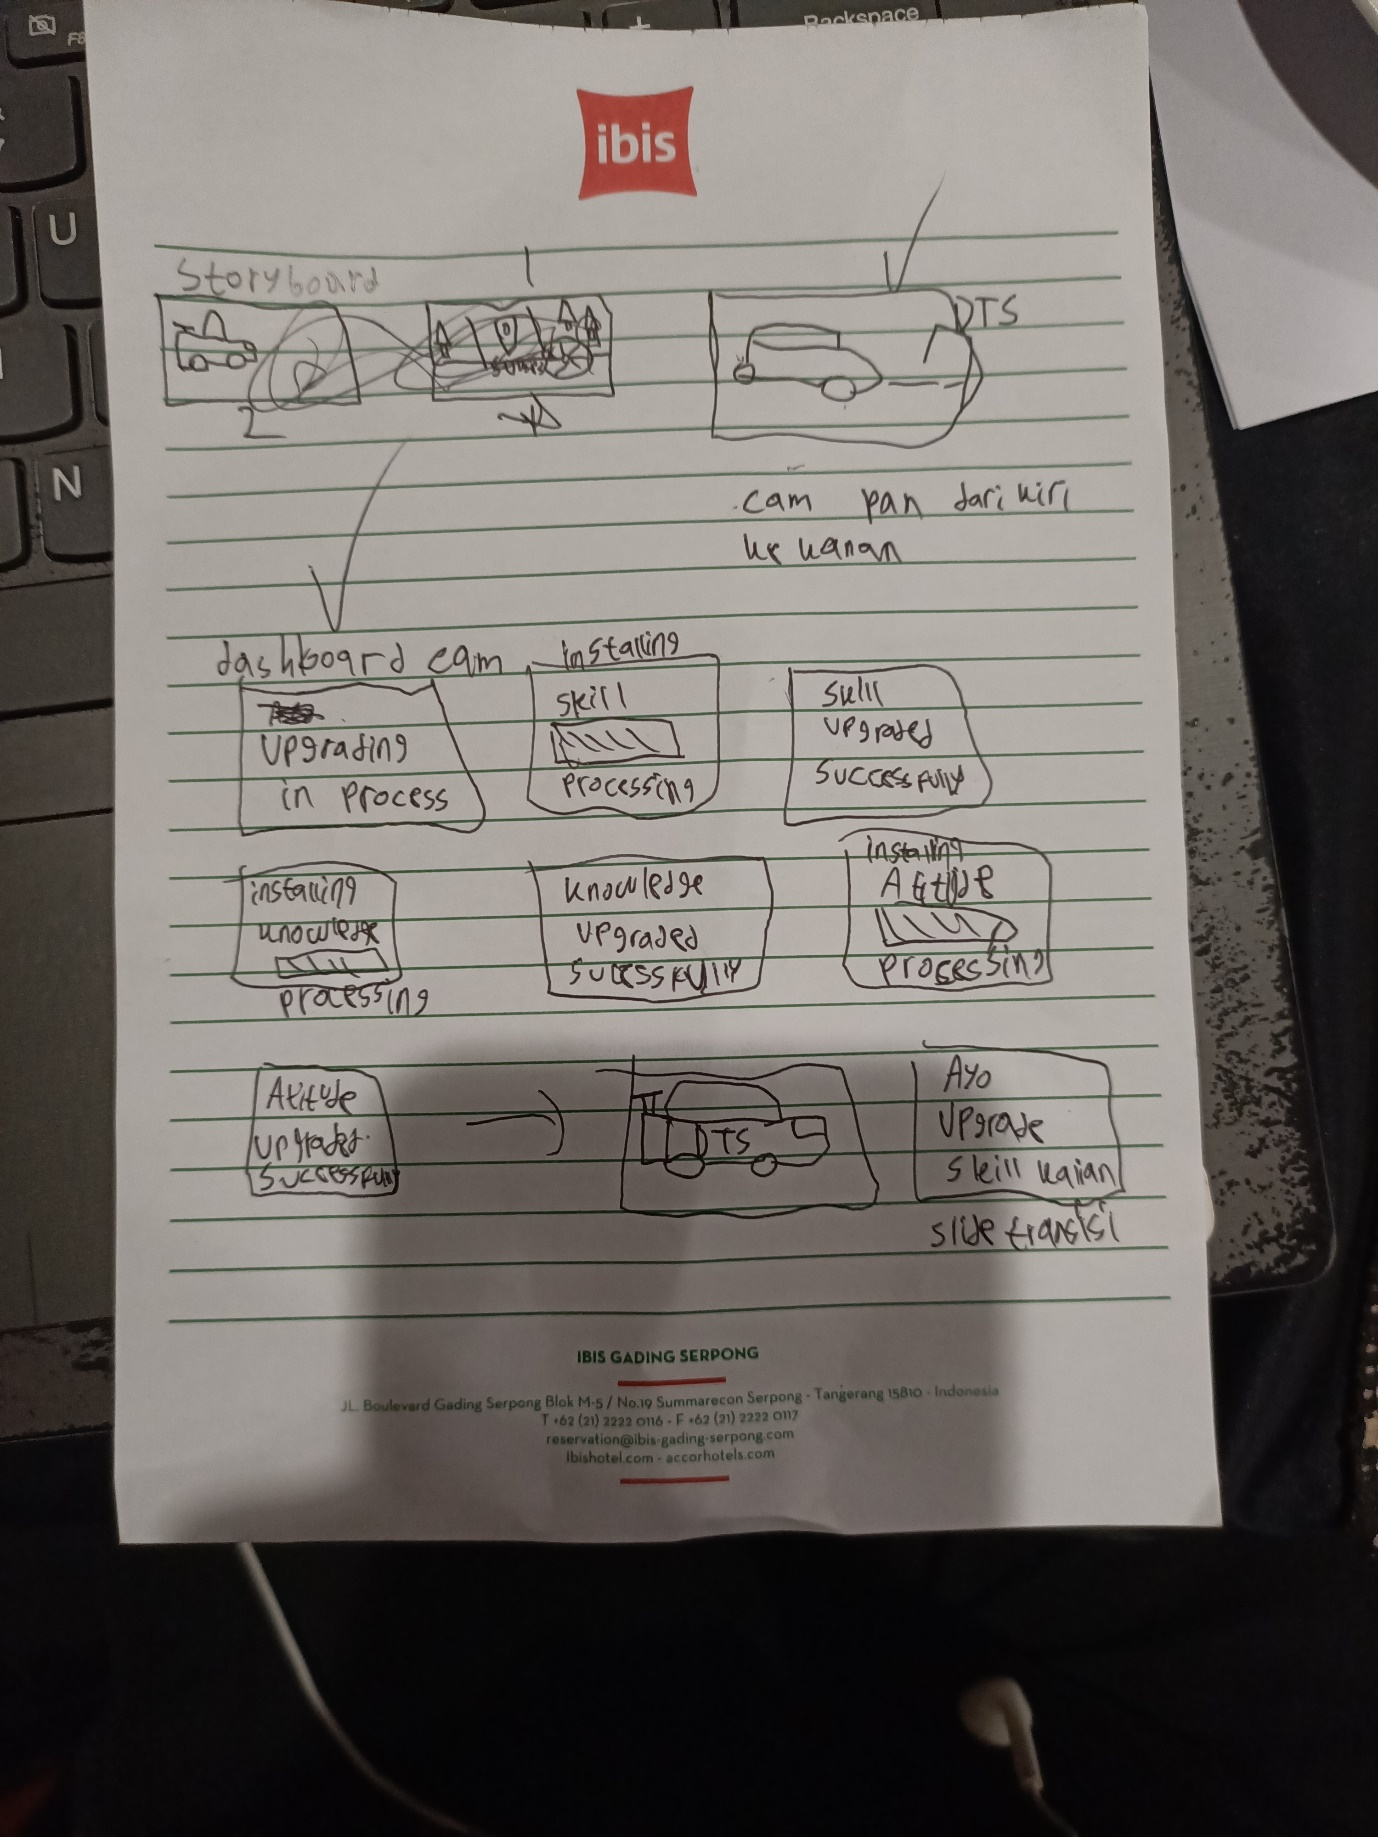 F8
Backspace
U
N
ibis
Storyboard
1
2
DTS
cam pan dari kiri
ke kanan
dashboard cam
Upgrading
in process
installing
skill
processing
skill
upgraded
successfully
installing
knowledge
processing
knowledge
upgraded
sucessfully
installing
Atitude
processing
Atitude
upgraded
successfully
DTS
Ayo
upgrade
skill kalian
slide transisi
IBIS GADING SERPONG
JL. Boulevard Gading Serpong Blok M-5 / No.19 Summarecon Serpong - Tangerang 15810 - Indonesia
T +62 (21) 2222 0116 - F +62 (21) 2222 0117
reservation@ibis-gading-serpong.com
Ibishotel.com - accorhotels.com